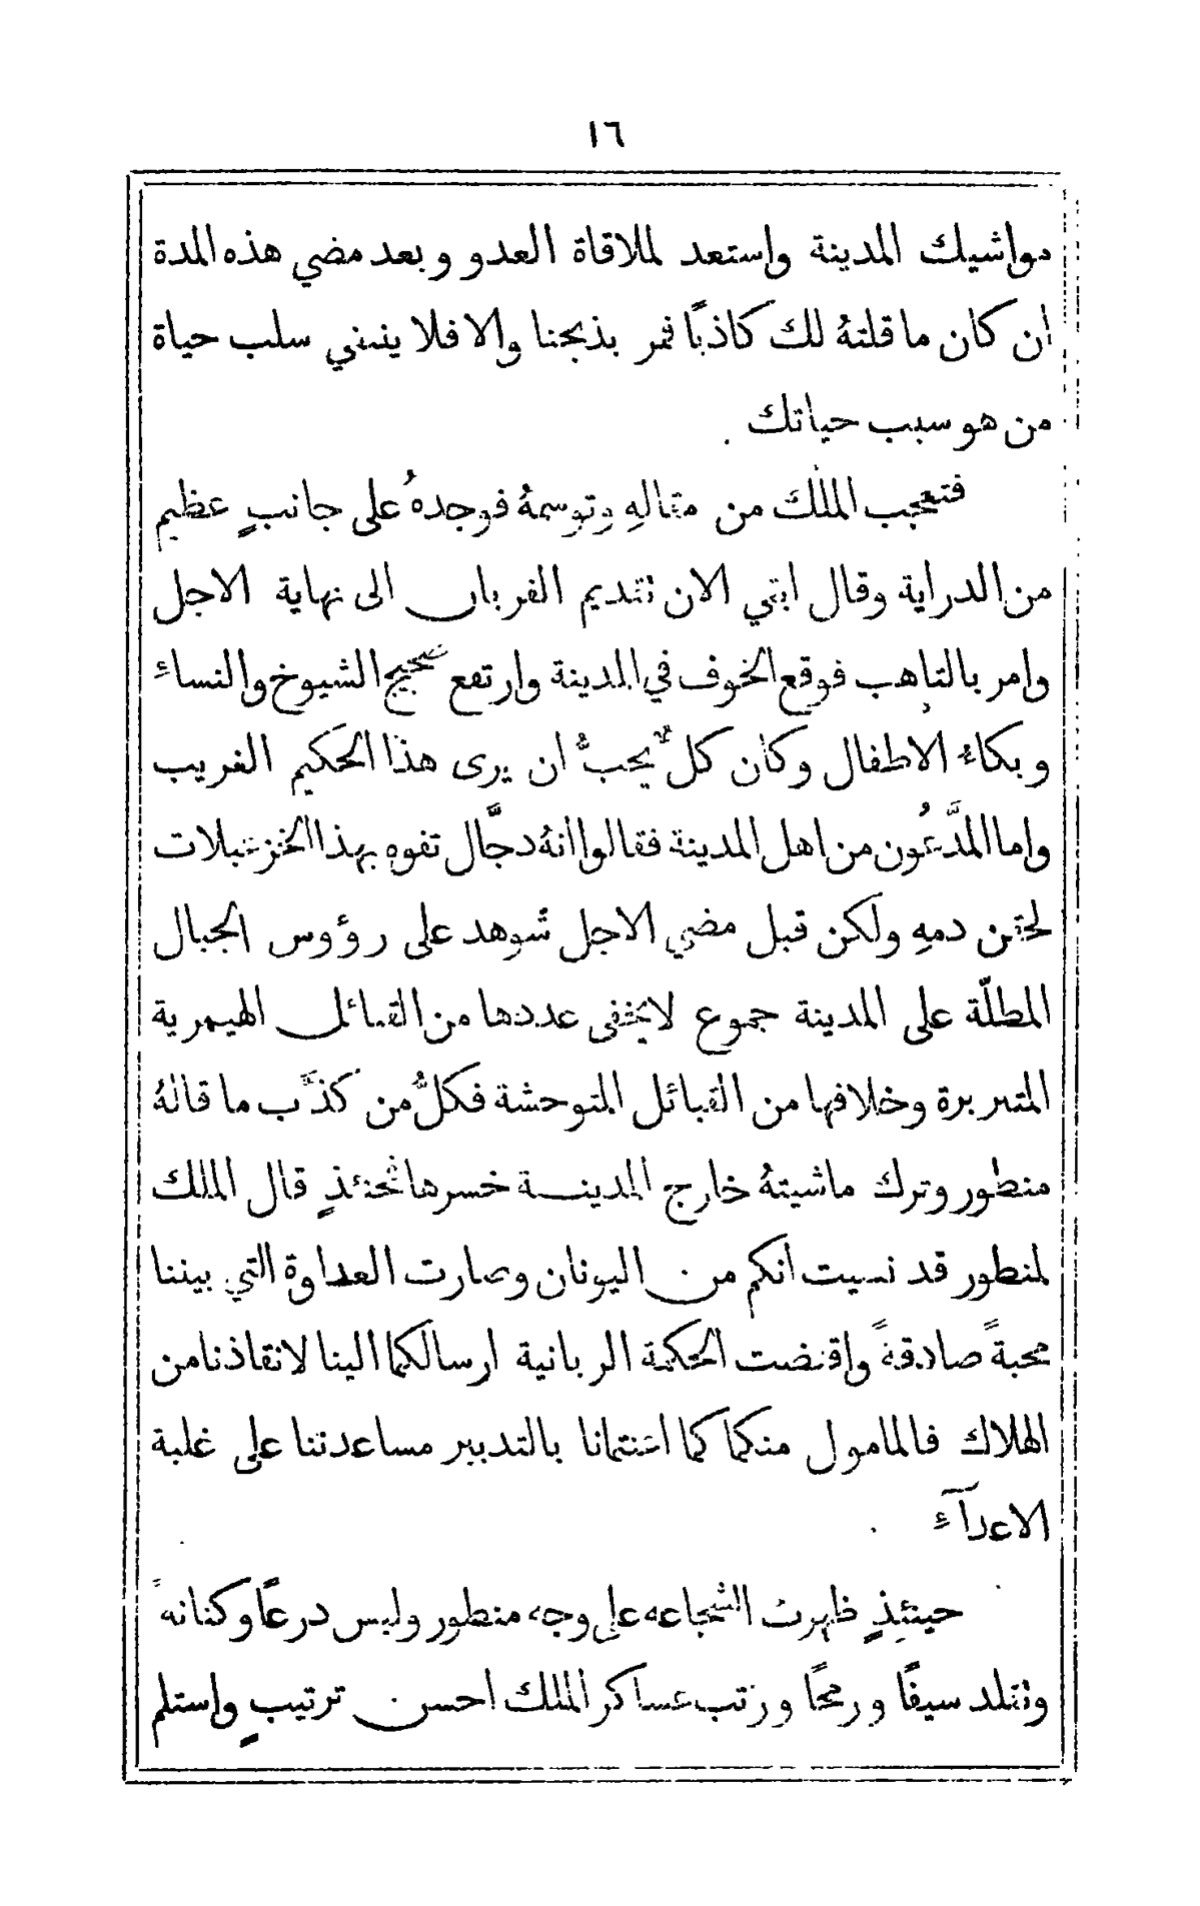 ١٦
مواشيك المدينة واستعد لملاقاة العدو وبعد مضي هذه المدة
ان كان ما قلتهُ لك كاذبًا فمر بذبحنا والا فلا ينبغي سلب حياة
من هو سبب حياتك .
فتعجب الملك من مقالهِ وتوسمهُ فوجدهُ على جانبٍ عظيم
من الدراية وقال ابقي الان تقديم القربان الى نهاية الاجل
وامر بالتاهب فوقع الخوف في المدينة وارتفع ضجيج الشيوخ والنساءِ
وبكاءُ الاطفال وكان كلٌّ يحبُّ ان يرى هذا الحكيم الغريب
واما المدَّعُون من اهل المدينة فقالوا انهُ دجَّال تفوه بهذا الخزعبلات
لحقن دمهِ ولكن قبل مضي الاجل شوهد على رؤوس الجبال
المطلّة على المدينة جموع لا يخفى عددها من القبائل الهيمرية
المتبربرة وخلافها من القبائل المتوحشة فكلُّ من كذَّب ما قالهُ
منطور وترك ماشيتهُ خارج المدينة خسرها فحنئذٍ قال الملك
لمنطور قد نسيت انكم من اليونان وصارت العداوة التي بيننا
محبةً صادقةً واقتضت الحكمة الربانية ارسالكما الينا لانقاذنا من
الهلاك فالمامول منكما كما اغنتمانا بالتدبير مساعدتنا على غلبة
الاعدآءِ .
حينئِذٍ ظهرت الشجاعه على وجه منطور ولبس درعًا وكنانةً
وتقلد سيفًا ورمحًا ورتب عساكر الملك احسن ترتيبٍ واستلم